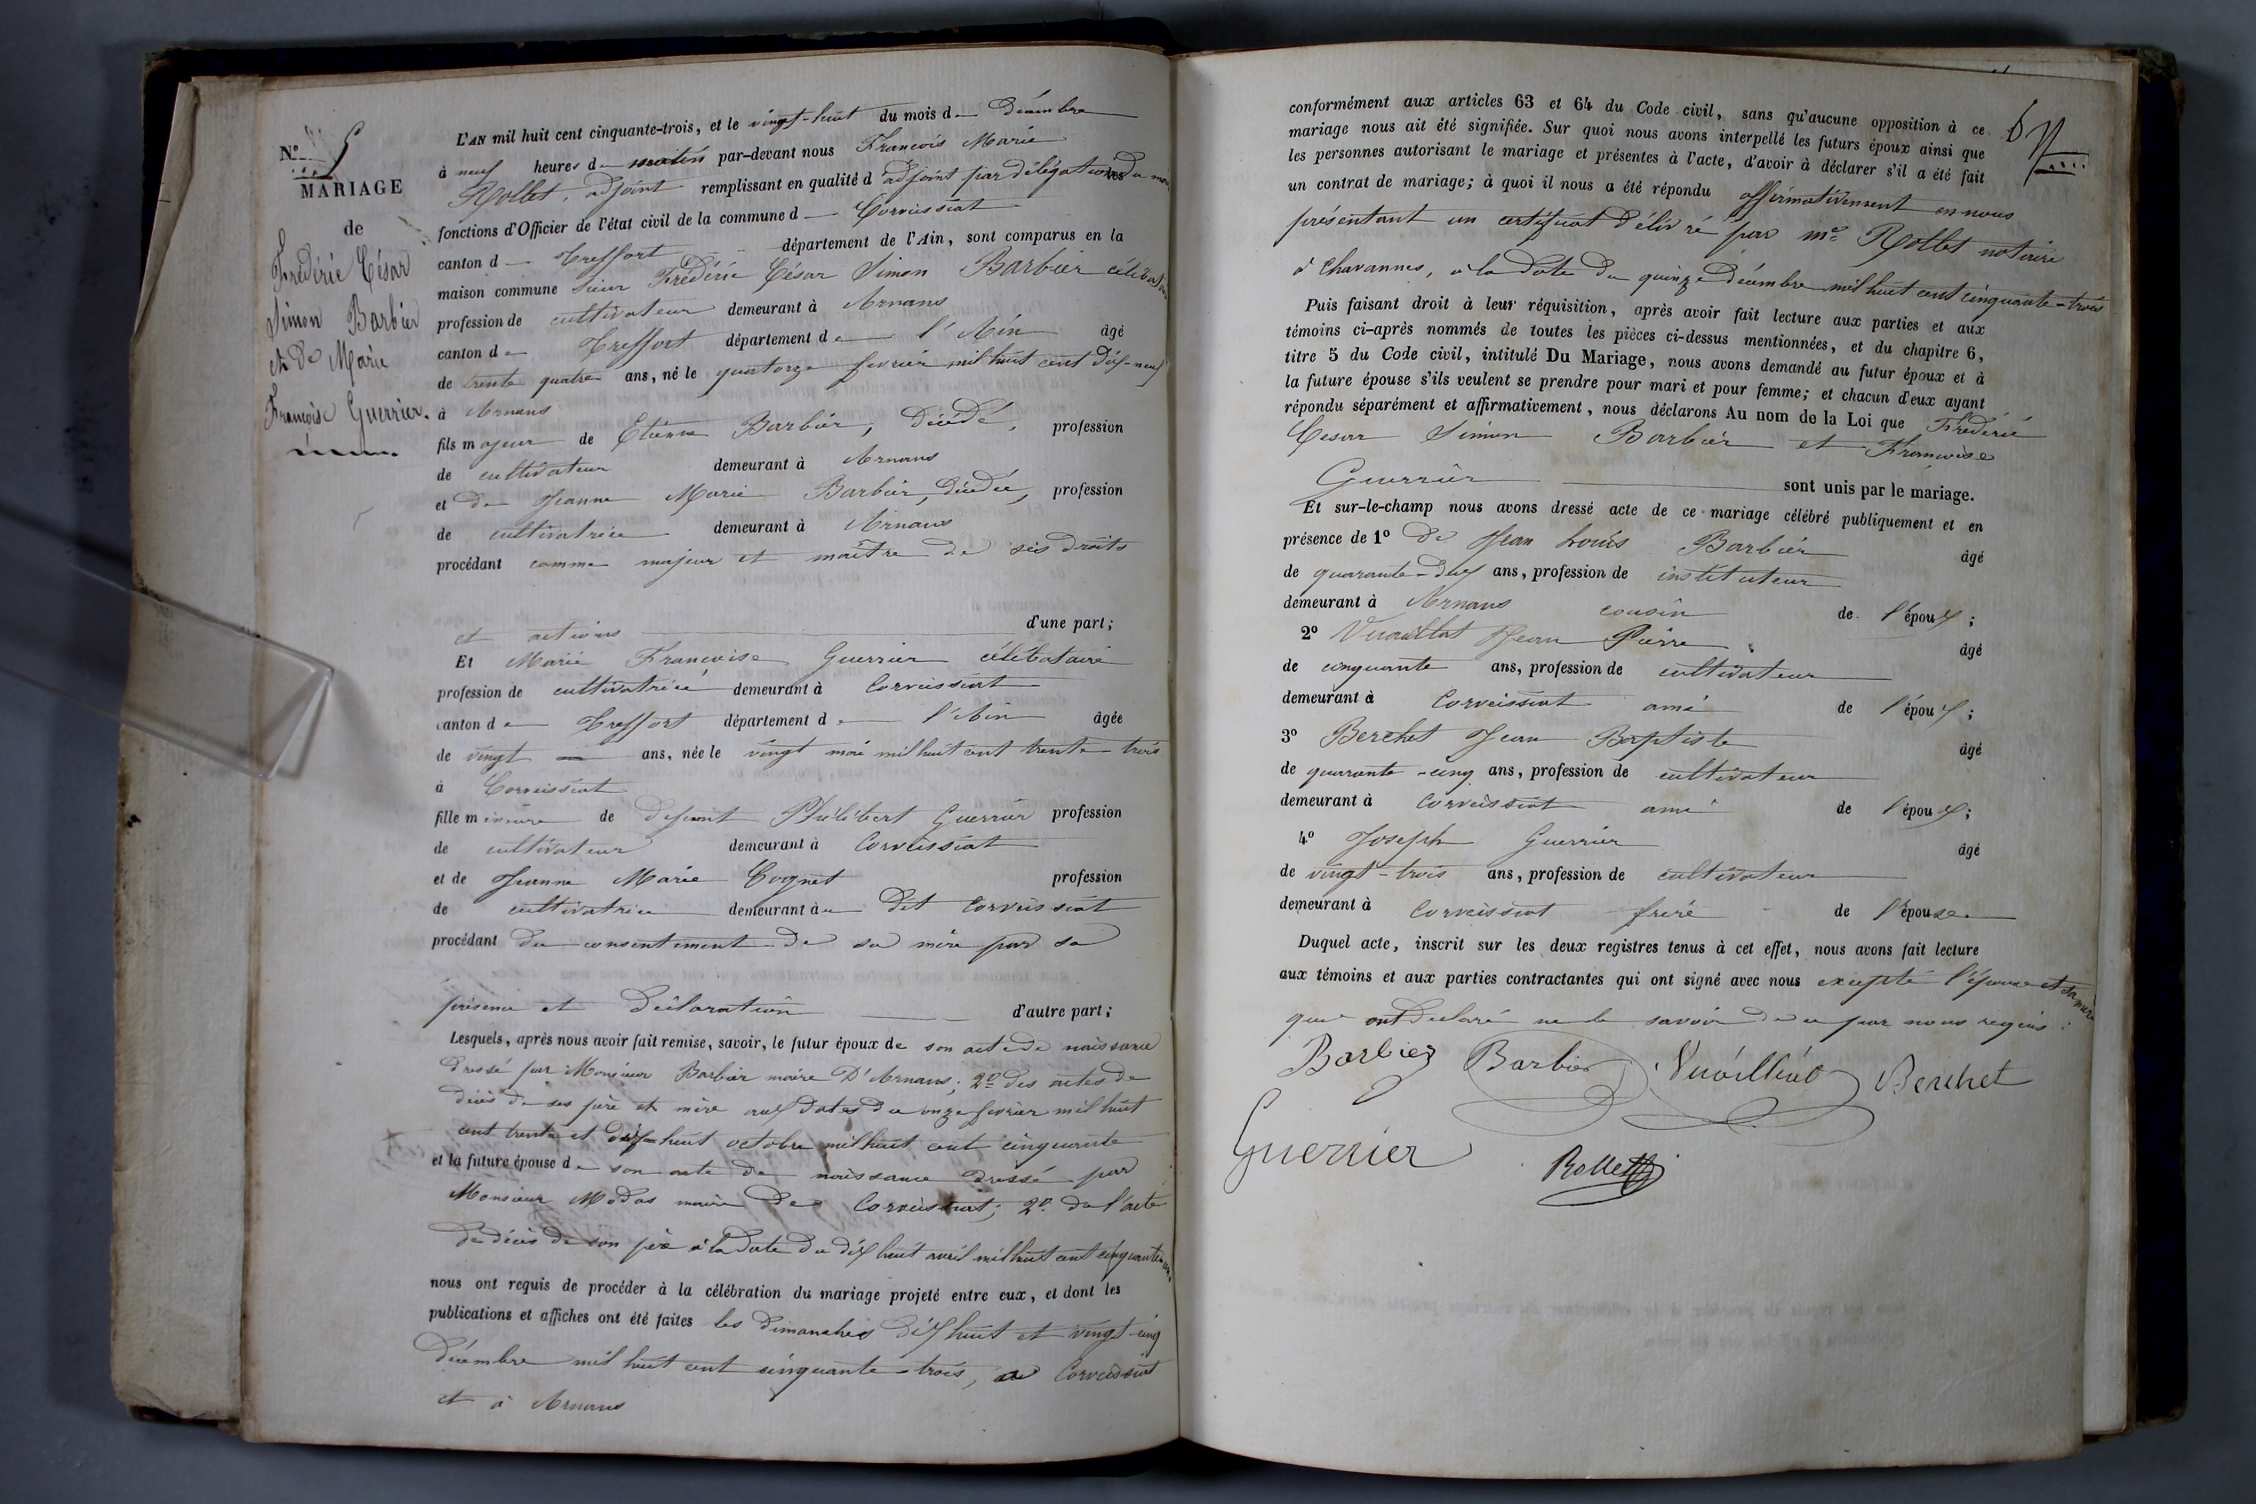 N.º 5
MARIAGE
de
Frédéric César
Simon Barbier
et de Marie
Françoise Guerrier.
L'AN mil huit cent cinquante-trois, et le vingt-huit du mois de Décembre
à neuf heures du matin par-devant nous François Marie
Rollet, adjoint remplissant en qualité d'adjoint par délégation du maire les
fonctions d'Officier de l'état civil de la commune de Corveissiat
canton de Treffort département de l'Ain, sont comparus en la
maison commune sieur Frédéric César Simon Barbier célibataire
profession de cultivateur demeurant à Arnans
canton de Treffort département de l'Ain âgé
de trente quatre ans, né le quatorze fevrier mil huit cent dix-neuf
à Arnans
fils majeur de Etienne Barbier, décédé, profession
de cultivateur demeurant à Arnans
et de Jeanne Marie Barbier, décédée, profession
de cultivatrice demeurant à Arnans
procédant comme majeur et maître de ses droits
et actions d'une part;
Et Marie Françoise Guerrier célibataire
profession de cultivatrice demeurant à Corveissiat
canton de Treffort département de l'Ain âgée
de vingt ans, née le vingt mai mil huit cent trente-trois
à Corveissiat
fille mineure de defunt Philibert Guerrier profession
de cultivateur demeurant à Corveissiat
et de Jeanne Marie Cognet profession
de cultivatrice demeurant au dit Corveissiat
procédant du consentement de sa mère par sa
présence et déclaration d'autre part;
Lesquels, après nous avoir fait remise, savoir, le futur époux de son acte de naissance
dressé par Monsieur Barbier maire D'Arnans; 2º des actes de
décès de ses père et mère aux dates du onze fevrier mil huit
cent trente et dix-huit octobre mil huit cent cinquante
et la future épouse de son acte de naissance dressé par
Monsieur Modas maire de Corveissiat; 2º de l'acte
de décès de son père à la date du dix huit avril mil huit cent cinquante
nous ont requis de procéder à la célébration du mariage projeté entre eux, et dont les
publications et affiches ont été faites les dimanches dix huit et vingt-cinq
décembre mil huit cent cinquante-trois, à Corveissiat
et à Arnans
conformément aux articles 63 et 64 du Code civil, sans qu'aucune opposition à ce
mariage nous ait été signifiée. Sur quoi nous avons interpellé les futurs époux ainsi que
les personnes autorisant le mariage et présentes à l'acte, d'avoir à déclarer s'il a été fait
un contrat de mariage; à quoi il nous a été répondu affirmativement en nous
présentant un certificat délivré par me Rollet notaire
à Chavannes, à la date du quinze décembre mil huit cent cinquante-trois
Puis faisant droit à leur réquisition, après avoir fait lecture aux parties et aux
témoins ci-après nommés de toutes les pièces ci-dessus mentionnées, et du chapitre 6,
titre 5 du Code civil, intitulé Du Mariage, nous avons demandé au futur époux et à
la future épouse s'ils veulent se prendre pour mari et pour femme; et chacun d'eux ayant
répondu séparément et affirmativement, nous déclarons Au nom de la Loi que Frédéric
Cesar Simon Barbier et Françoise
Guerrier sont unis par le mariage.
Et sur-le-champ nous avons dressé acte de ce mariage célébré publiquement et en
présence de 1º de Jean Louis Barbier âgé
de quarante-deux ans, profession de instituteur
demeurant à Arnans cousin de l'époux;
2º Vuaillat Jean Pierre âgé
de cinquante ans, profession de cultivateur
demeurant à Corveissiat ami de l'époux;
3º Berchet Jean Baptiste âgé
de quarante-cinq ans, profession de cultivateur
demeurant à Corveissiat ami de l'époux;
4º Joseph Guerrier âgé
de vingt-trois ans, profession de cultivateur
demeurant à Corveissiat frère de l'épouse.
Duquel acte, inscrit sur les deux registres tenus à cet effet, nous avons fait lecture
aux témoins et aux parties contractantes qui ont signé avec nous excepté l'épouse et sa mère
qui ont déclaré ne le savoir de ce par nous requis.
Barbier Barbier Vuaillat Berchet
Guerrier Rollet